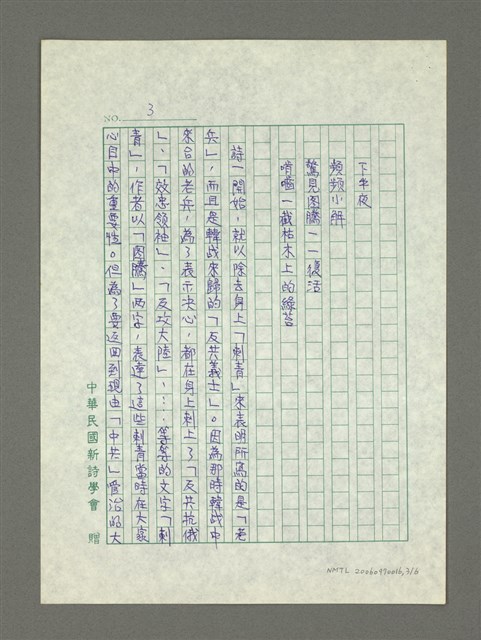 NO. 3
下半夜
頻頻小解
驚見圖騰一一復活
啃嚙一截枯木上的綠苔
詩一開始,就以除去身上「刺青」來表明所寫的是「老
兵」,而且是韓戰來歸的「反共義士」。因為那時韓戰中
來台的老兵,為了表示決心,都在身上刺上了「反共抗俄
」、「效忠領袖」、「反攻大陸」、…等等的文字「刺
青」,作者以「圖騰」兩字,表達了這些刺青當時在大家
心目中的重要性。但為了要返回到現由「中共」管治的大
中華民國新詩學會 贈
NMTL 20060970016, 3/6